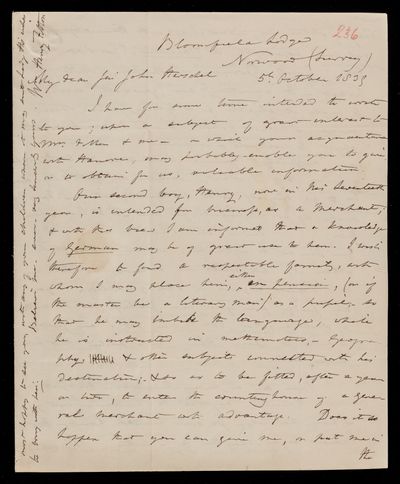 236
Bloomfield Lodge
Norwood (Surrey)
5th October 1839
My dear Sir John Herschel
I have for some time intended to write
to you, upon a subject of great interest to
Mrs. & me - in which your acquaintance
with Hanover, may probably enable you to give
or to obtain for us, valuable information.
Our second boy, Henry, now in his seventeenth
year, is intended for business, as a Merchant;
& with this view I am informed that a knowledge
of German may be of great use to him. I wish
therefore to find a respectable family, with
whom I may place him, either en pension, (or if
the master be a literary man) as a pupil, so
that he may imbibe the language, while
he is instructed in mathematics, - Geogra-
phy, & other subjects connected with his
destination; - & so as to be fitted, after a year
or two, to enter the counting house of a Gene-
ral merchant with advantage. Does it so
happen that you can give me, or put me in
the
most happy to see you, with any of your children whom it may suit Lady Herschel
to bring with her.
Believe me ever very sincerely yours